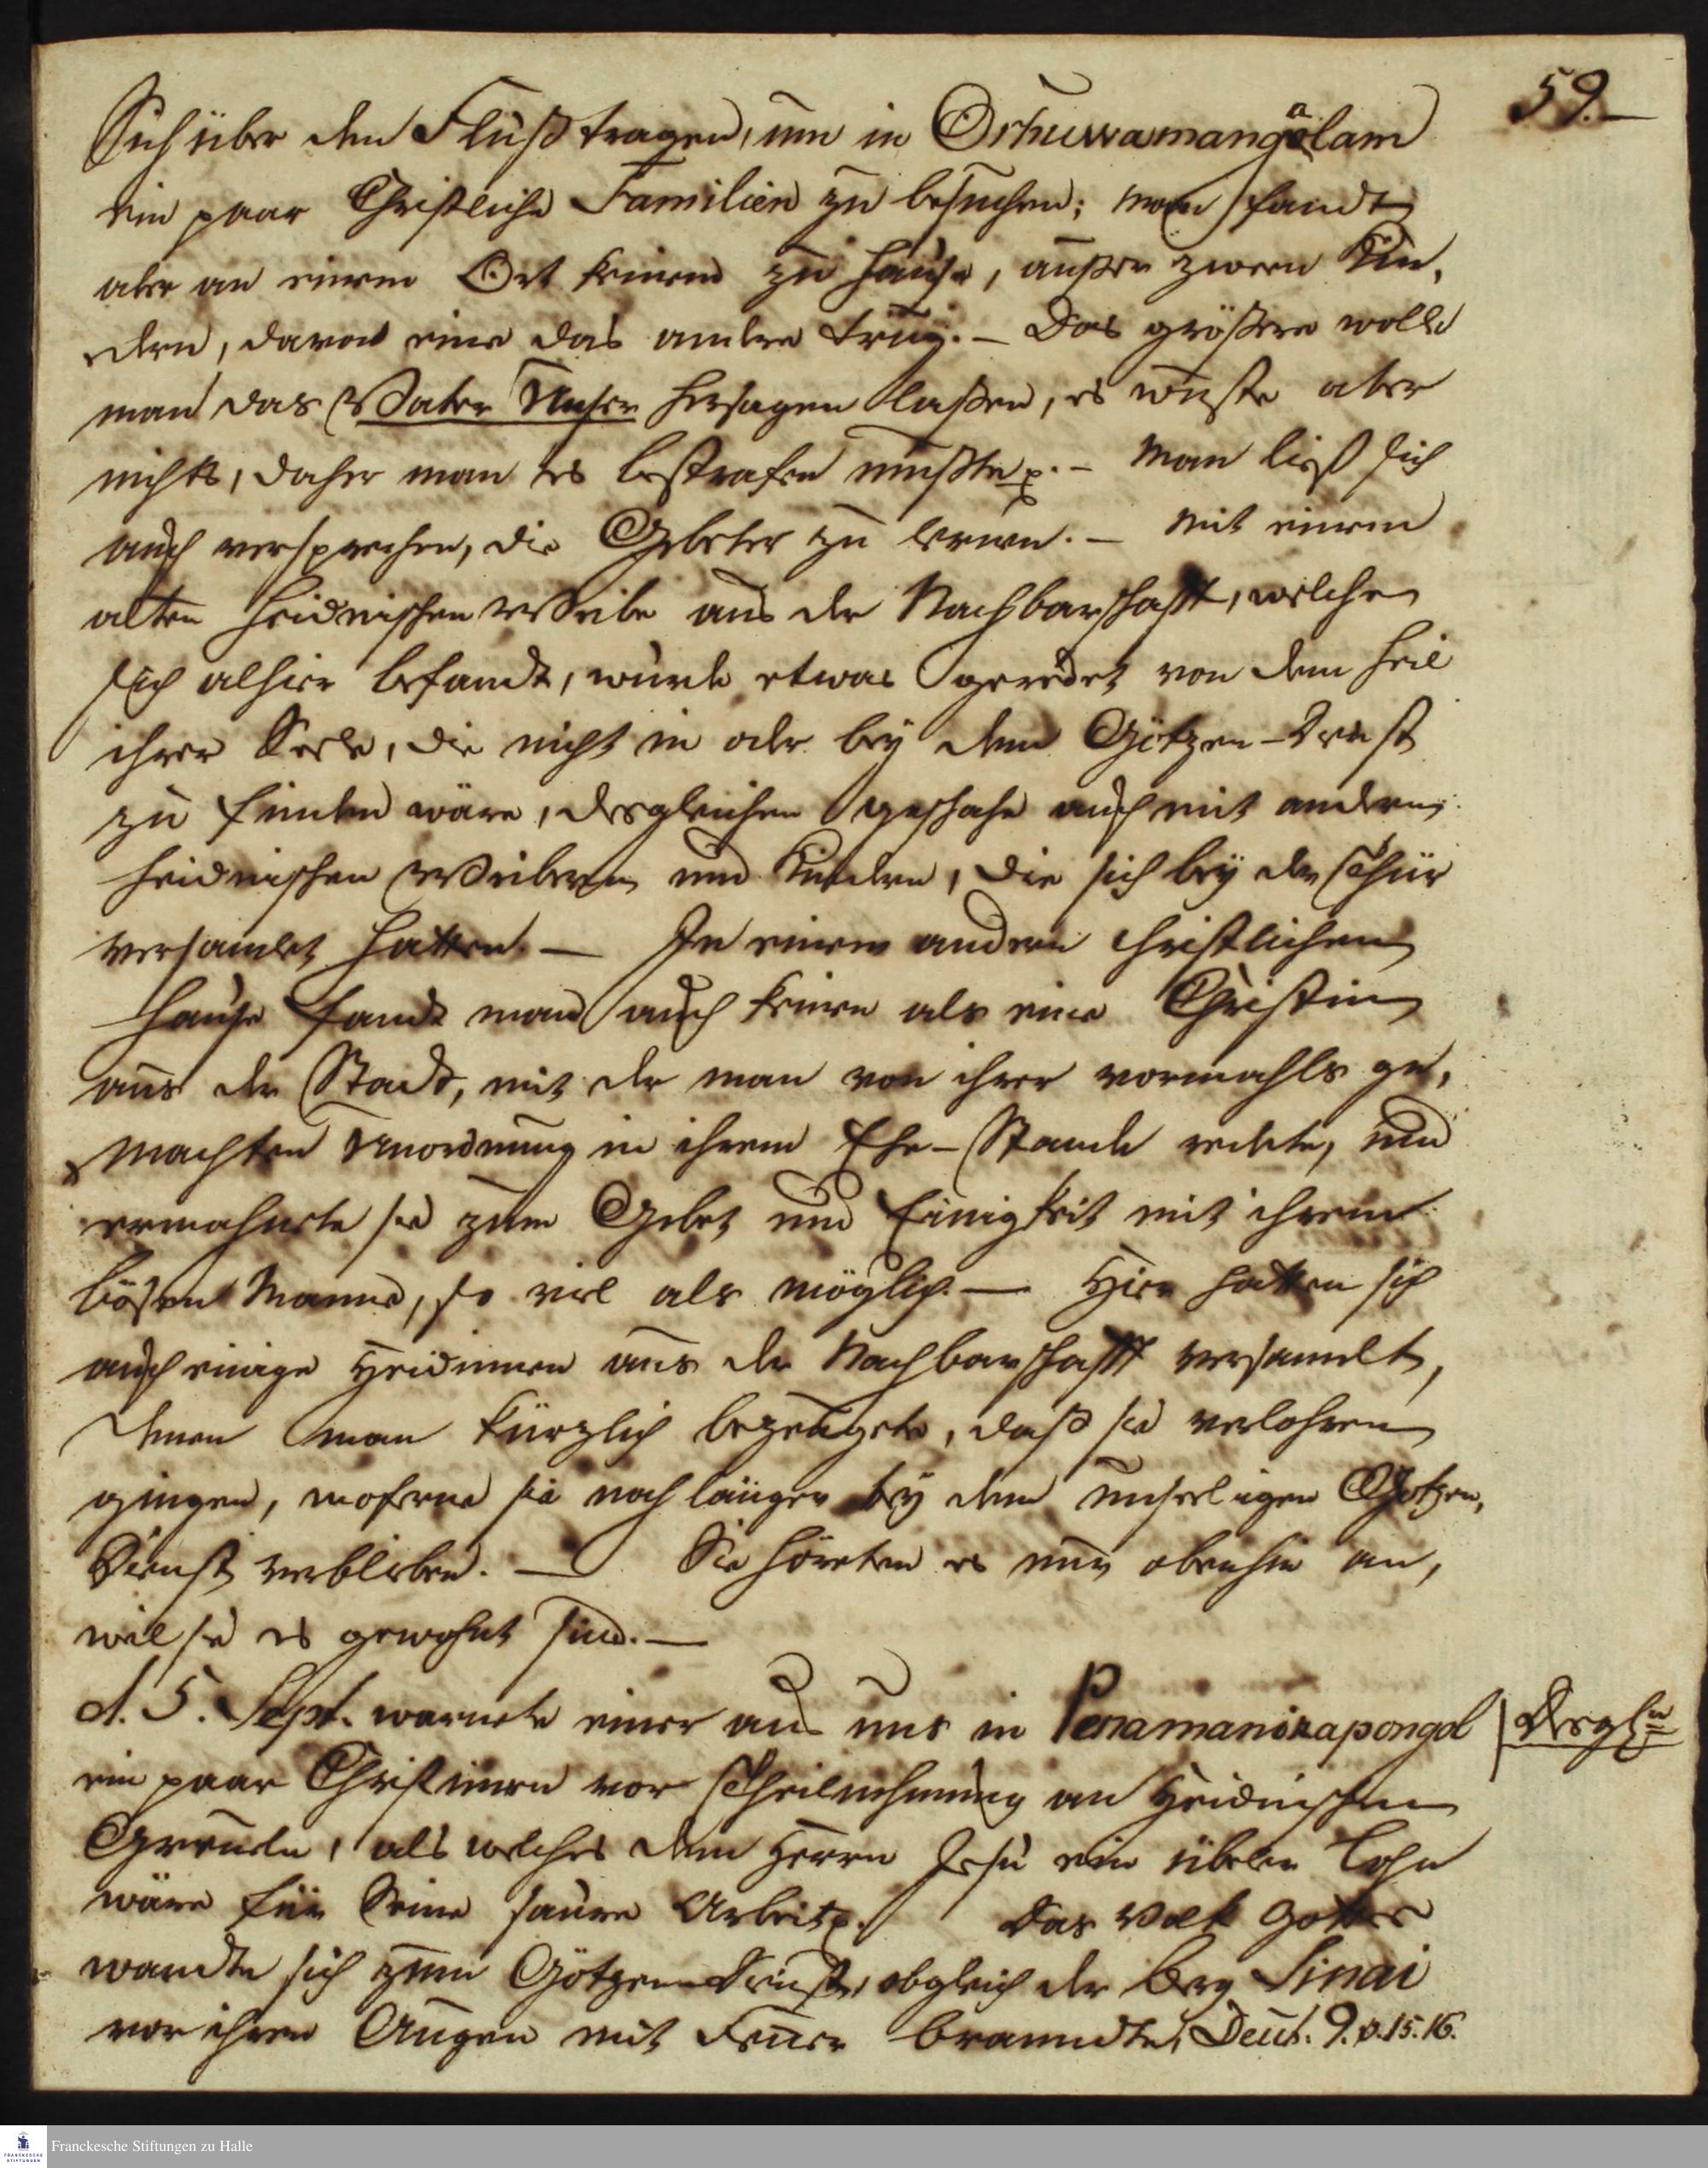 59.
Sich über den Fluß tragen, um in Orhuwamangalam
ein paar Christliche Familien zu besuchen; man fandt
aber an einem Ort keinen zu Hause, außer zween Kin,
dern, davon eine das andere trug. — Das größere wolte
man das Vater Unser hersagen laßen, es wuste aber
nichts, daher man es bestrafen mußte p. — Man ließ sich
auch versprechen, die Gebeter zu lernen. — Mit einem
alten heidnischen Weibe aus der Nachbarschafft, welche
sich alhier befandt, wurde etwas geredet von dem Heil
ihrer Seele, die nicht in oder bey dem Götzen-Dienst
zu finden wäre, desgleichen geschahe auch mit andern
heidnischen Weibern und Kindern, die sich bey der Thür
versamlet hatten. — In einem andern christlichen
Hause fandt man auch keinen als eine Christin
aus der Stadt, mit der man von ihrer vormahls ge,
machten Unordnung in ihrem Ehe-Stande redete, und
ermahnete sie zum Gebet und Einigkeit mit ihrem
bösen Manne, so viel als möglich. — Hier hatten sich
auch einige Heidinnen aus der Nachbarschafft versamlet,
denen man kürzlich bezeugete, daß sie verlohren
gingen, woferne sie noch länger bey dem unseeligen Götzen,
Dienst verblieben. — Sie höreten es nur obenhin an,
wie sie es gewohnt sind. —
d. 5. Sept. warnete einer aus uns in Perramanikapongol
Desgl.
ein paar Christinnen vor Theilnehmung an Heidnischen
Greueln, als welches dem Herrn Jesu ein übeler Lohn
wäre für Seine saure Arbeit p. Das Volk Gottes
wandte sich zum Götzen-Dienst, obgleich der Berg Sinai
vor ihren Augen mit Feuer branndte, Deut. 9. v. 15. 16.
Franckesche Stiftungen zu Halle
FRANCKESCHE STIFTUNGEN